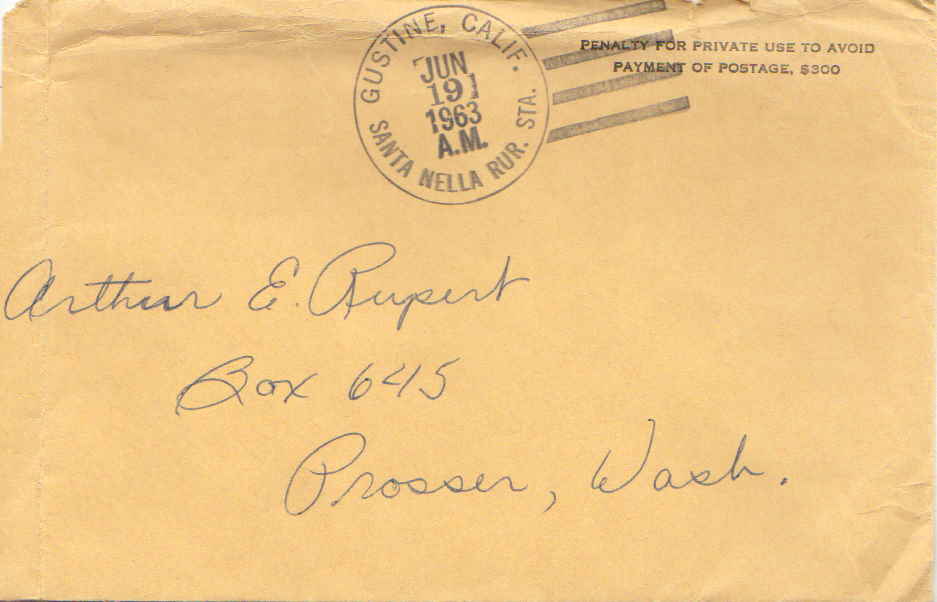 GUSTINE, CALIF.
JUN
19
1963
A.M.
SANTA NELLA RUR. STA.
PENALTY FOR PRIVATE USE TO AVOID
PAYMENT OF POSTAGE, $300
Arthur E. Rupert
Box 645
Prosser, Wash.